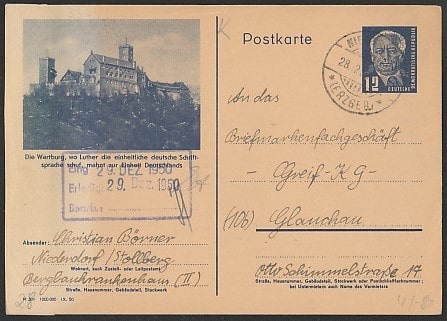 Postkarte
12
DEUTSCHE
DEMOKRATISCHE REPUBLIK
28.
* (ERZGEB.) *
Die Wartburg, wo Luther die einheitliche deutsche Schrift-
sprache schuf, mahnt zur Einheit Deutschlands
Eing. 29. DEZ. 1950
29. Dez. 1950
Absender: Christian Börner
Niederdorf / Stollberg
Wohnort, auch Zustell- oder Leitpostamt
Bergbaukrankenhaus (II)
Straße, Hausnummer, Gebäudeteil, Stockwerk
An das
Briefmarkenfachgeschäft
- Greif-KG -
(10b) Glauchau
Otto Schimmelstraße 14
Straße, Hausnummer, Gebäudeteil, Stockwerk oder Postschließfachnummer;
bei Untermietern auch Name des Vermieters